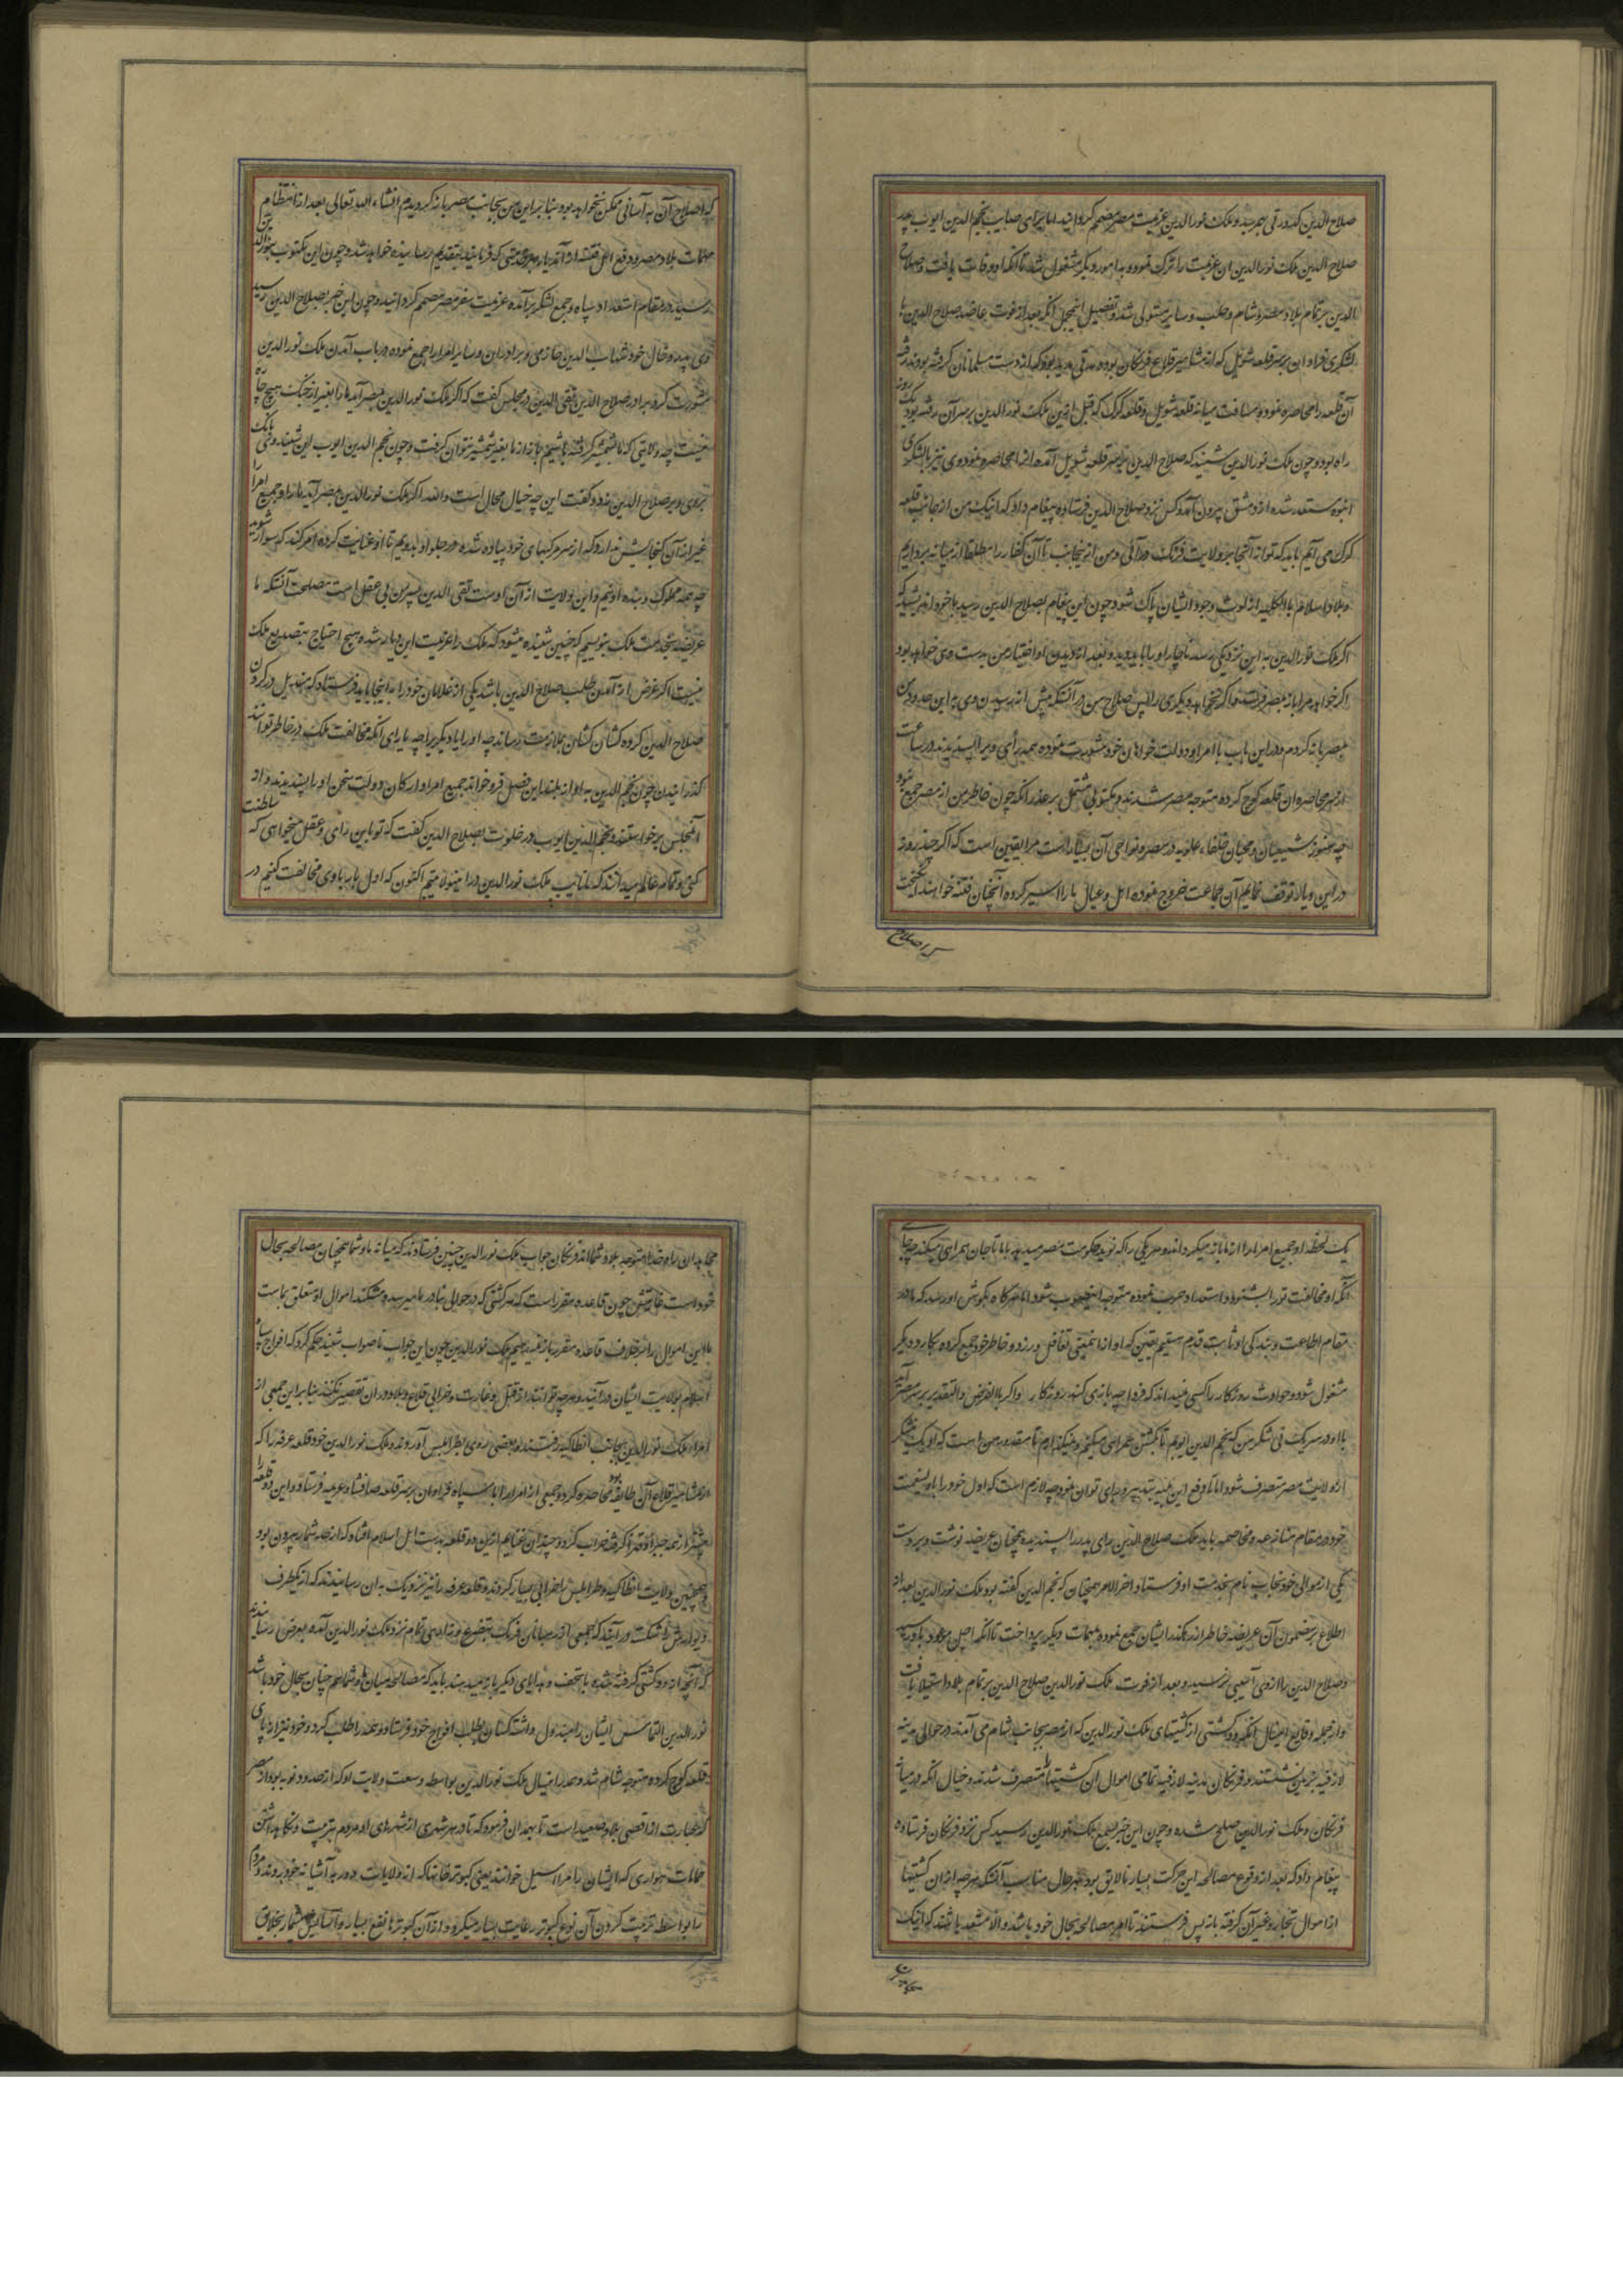 صلاح الدین کدورتی بهم رسید و ملک نورالدین عزیمت مصر مصمم گردانید اما برای صایب نجم الدین ایوب پدر
صلاح الدین ملک نورالدین ان عزیمت را ترک نموده و بدامور دیگر مشغول شد تا آنکه او وفات یافت و صلاح
الدین بر تمام بلاد مصر و شام و حلب و سایر مستولی شد و تفصیل این مجمل آنکه بعد از فوت عاضد صلاح الدین با
لشکری فراوان بر سر قلعه شوبک که از مشاهیر قلاع فرنگان بود و مدتی مدید بود که از دست مسلمانان گرفته بودند رفته
آن قلعه را محاصره نمود و مسافت میانه قلعه شوبک و قلعه کرک که قبل ازین ملک نورالدین بر سر آن رفته بود یک روزه
راه بود و چون ملک نورالدین شنید که صلاح الدین بر سر قلعه شوبک آمده انرا محاصره نموده وی نیز با لشکری
انبوه مستعد شده از دمشق بیرون آمد و کس نزد صلاح الدین فرستاده پیغام داد که اینک من از جانب قلعه
کرک می آیم باید که تو از آنجا بر ولایت فرنگ در آئی و من ازینجانب تا آن کفار را مطلقا از میانه برداریم
و بلاد اسلام بالکلیه از لوث وجود ایشان پاک شود و چون این پیغام بصلاح الدین رسید با خود اندیشید که
اگر ملک نورالدین به این نزدیکی رسد ناچار او را باید دید و بعد از دیدن او اختیار من بدست وی خواهد بود
اگر خواهد مرا باز بمصر فرستد و اگر نخواهد دیگری را پس صلاح من در آنستکه پیش از رسیدن وی به این حدود من
بمصر باز گردم و در این باب با امرا و دولت خواهان خود مشورت نموده همه رأی ویرا پسندیدند در ساعت
از سر محاصره ان قلعه کوچ کرده متوجه مصر شدند و مکتوبی مشتمل بر عذر آنکه چون خاطر من از مصر جمع نبود
چه هنوز شیعیان و محبان خلفاء علویه در مصر و نواحی آن بسیار است مرا یقین است که اگر چند روز
در این دیار توقف نمایم آن جماعت خروج نموده اهل و عیال ما را اسیر کرده آنچنان فتنه خواهند انگیخت
که اصلاح
که اصلاح آن به آسانی ممکن نخواهد بود بنابراین من بجانب مصر باز گردیدم انشاء الله تعالی بعد از انتظام
مهمات بلاد مصر و دفع اهل فتنه آن دیار بهر خدمتی که فرمایند بتقدیم رسانیده خواهد شد و چون این مکتوب بنورالدین
رسید در مقام استعداد سپاه و جمع لشکر برآمده عزیمت سفر مصر مصمم گردانید و چون این خبر بصلاح الدین رسید
وی پدر و خال خود شهاب الدین حازمی و برادران و سایر امرا را جمع نموده در باب آمدن ملک نورالدین
مشورت کرد برادر صلاح الدین تقی الدین در مجلس گفت که اگر ملک نورالدین بمصر آید ما را بغیر از جنگ هیچ چاره
نیست چه ولایتی که ما بشمشیر گرفته باشیم باز از ما بغیر شمشیر نتوان گرفت و چون نجم الدین ایوب این شنید وی بانک
بر وی و بر صلاح الدین زد و گفت این چه خیال محال است والله اگر ملک نورالدین بمصر آید ما را و جمیع امرا را
غیر از آن گنجایش ندارد که از سر مرکبهای خود پیاده شده در جلو او بدویم تا او عنایت کرده امر کند که سوار شوید
چه همه مملوک و بنده اوئیم و این ولایت از آن اوست تقی الدین پسر من بی عقل است مصلحت آنستکه ما
عریضه بخدمت ملک بنویسیم که چنین شنیده میشود که ملک را عزیمت این دیار شده هیچ احتیاج بتصدیع ملک
نیست اگر غرض از آمدن طلب صلاح الدین باشد یکی از غلامان خود را به اینجا باید فرستاد که مندیل در گردن
صلاح الدین کرده کشان کشان بملازمت رساند چه او را یا دیگریرا چه یارای آنکه مخالفت ملک در خاطر توانند
گذرانیدن چون نجم الدین به آواز بلند این فصل فرو خواند جمیع امرا و ارکان دولت سخن او را پسندیدند و از
آنمجلس برخواستند و نجم الدین ایوب در خلوت بصلاح الدین گفت که تو باین رای و عقل میخواهی که سلطنت
کنی و تمام عالم میدانند که ما نایب ملک نورالدین در اینولایتیم اکنون که اول بار با وی مخالفت کنیم در
یک لحظه او جمیع امرا را از ما باز میگرداند و هر یکی را که نوید حکومت مصر میدهد با ما تا جان همراهی میکند چه جای
آنکه او مخالفت تو را بشنود و استعداد حرب نموده متوجه اینصوب شود اما هرگاه بگوش او رسد که ما در
مقام اطاعت و بندگی او ثابت قدم و مستقیم یقین که او از اینمعنی تغافل ورزد و خاطر خود جمع کرده بکار و دیگر
مشغول شود و حوادث روزگار را کسی نمیداند که فردا چه بازی کند روزگار و اگر بالفرض والتقدیر بر سر مصر آید
با او در سر یک نی شکر من که نجم الدین ایوبم تا کشتن همراهی میکنم و نمیگذارم تا مقدور من است که او یک نیشکر
از ولایت مصر متصرف شود اما تا دفع این بلیه بتدبیر و رای توان نمود چه لازم است که اول خود را با ولینعمت
خود در مقام منازعه و مخاصمه باید ملک صلاح الدین رای پدر را پسندیده همچنان عریضه نوشت و بر دست
یکی از موالی خود نجاب نام بخدمت او فرستاد و اخر الامر همچنان که نجم الدین گفته بود ملک نورالدین بعد از
اطلاع بر مضمون آن عریضه خاطر از رهگذر ایشان جمع نموده بمهمات دیگر پرداخت تا آنکه اجل موعود باو رسید
و صلاح الدین را از وی آسیبی نرسید و بعد از فوت ملک نورالدین صلاح الدین بر تمام بلاد استیلا یافت
و از جمله وقایع اینسال آنکه دو کشتی از کشتیهای ملک نورالدین که از مصر بجانب شام می آمدند در حوالی مدینه
لاذقیه بزمین نشستند و فرنگان مدینه لاذقیه تمامی اموال ان کشتیها را متصرف شدند و خیال آنکه در میانه
فرنگان و ملک نورالدین صلح شده و چون این خبر بسمع ملک نورالدین رسید کس نزد فرنگان فرستاده
پیغام داد که بعد از وقوع مصالحه این حرکت بسیار نالایق بود بهر حال مناسب آنستکه هر چه از ان کشتیها
از اموال تجار و غیر آن گرفته باز پس فرستند تا امر مصالحه بحال خود باشد والا مستعد باشند که اینک
مجاهدان راه خدا متوجه بلاد شما اند فرنگان جواب ملک نورالدین چنین فرستادند که میانه ما و شما همچنان مصالحه بحال
خود است غایتش چون قاعده مقرر است که هر کشتی که در حوالی بنادر ما میرسد و میشکند اموال او متعلق بماست
ما این اموال را بر خلاف قاعده مقرر باز نمیدهیم ملک نورالدین چون این جواب ناصواب شنید حکم کرد که افواج سپاه
اسلام بولایت ایشان درآیند و هر چه توانند از قتل و غارت و خرابی قلاع و بلاد در ان تقصیر نکنند بنابراین جمعی از
امراء ملک نورالدین بجانب انطاکیه رفتند و بعضی روی بطرابلس آوردند و ملک نورالدین خود قلعه عرقه را که
از مشاهیر قلاع آن طایفه بود محاصره کرد و جمعی از امرا را با سپاه فراوان بر سر قلعه صافیتا و عریمه فرستاد و این دو قلعه را
پیشتر از همه جبرا و قهرا گرفته خراب کرد و چندان غنایم ازین دو قلعه بدست اهل اسلام افتاد که از حد شمار بیرون بود
و همچنین ولایت انطاکیه و طرابلس را خرابی بسیار کردند و قلعه عرقه را نیز نزدیک به ان رسانیدند که از یکطرف
دیوارش را شکست درآیند که جمعی از رهبانان فرنگ بتضرع و زاری تمام نزد ملک نورالدین آمده بعرض رسانیدند
که آنچه از دو کشتی گرفته شده با تحف و هدایای دیگر باز میدهند باید که مصالحه میان ما و شما هم چنان بحال خود باشد
نورالدین التماس ایشان را مبذول داشته کسان بطلب افواج خود فرستاد و همه را طلب کرد و خود نیز از پای
قلعه کوچ کرده متوجه شام شد و هم در اینسال ملک نورالدین بواسطه وسعت ولایت او که از حد دو نوبه بود از مصر
که عبارت از اقصی بلاد صعید است تا بهمدان فرمود که تا در هر شهری از شهرهای او مردم بتربیت و نگاهداشتن
حمامات هواری که ایشان را مراسیل خوانند یعنی کبوتر خانها که از ولایات دور به آشیانه خود بروند و مردم
را بواسطه تربیت کردن آن نوع کبوتر رعایت بسیار میکرد و از آن کبوترها نفع بسیار و آسایش بیشمار بخلایق